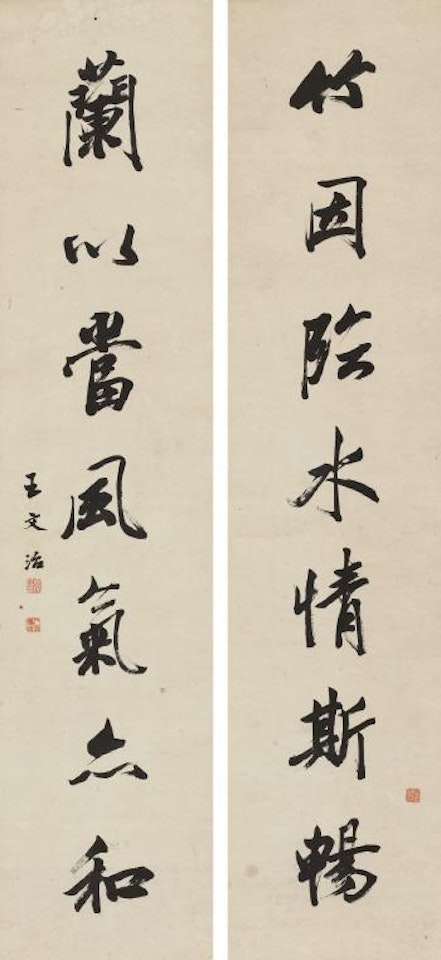 竹因臨水情斯暢
蘭以當風氣亦和
王文治